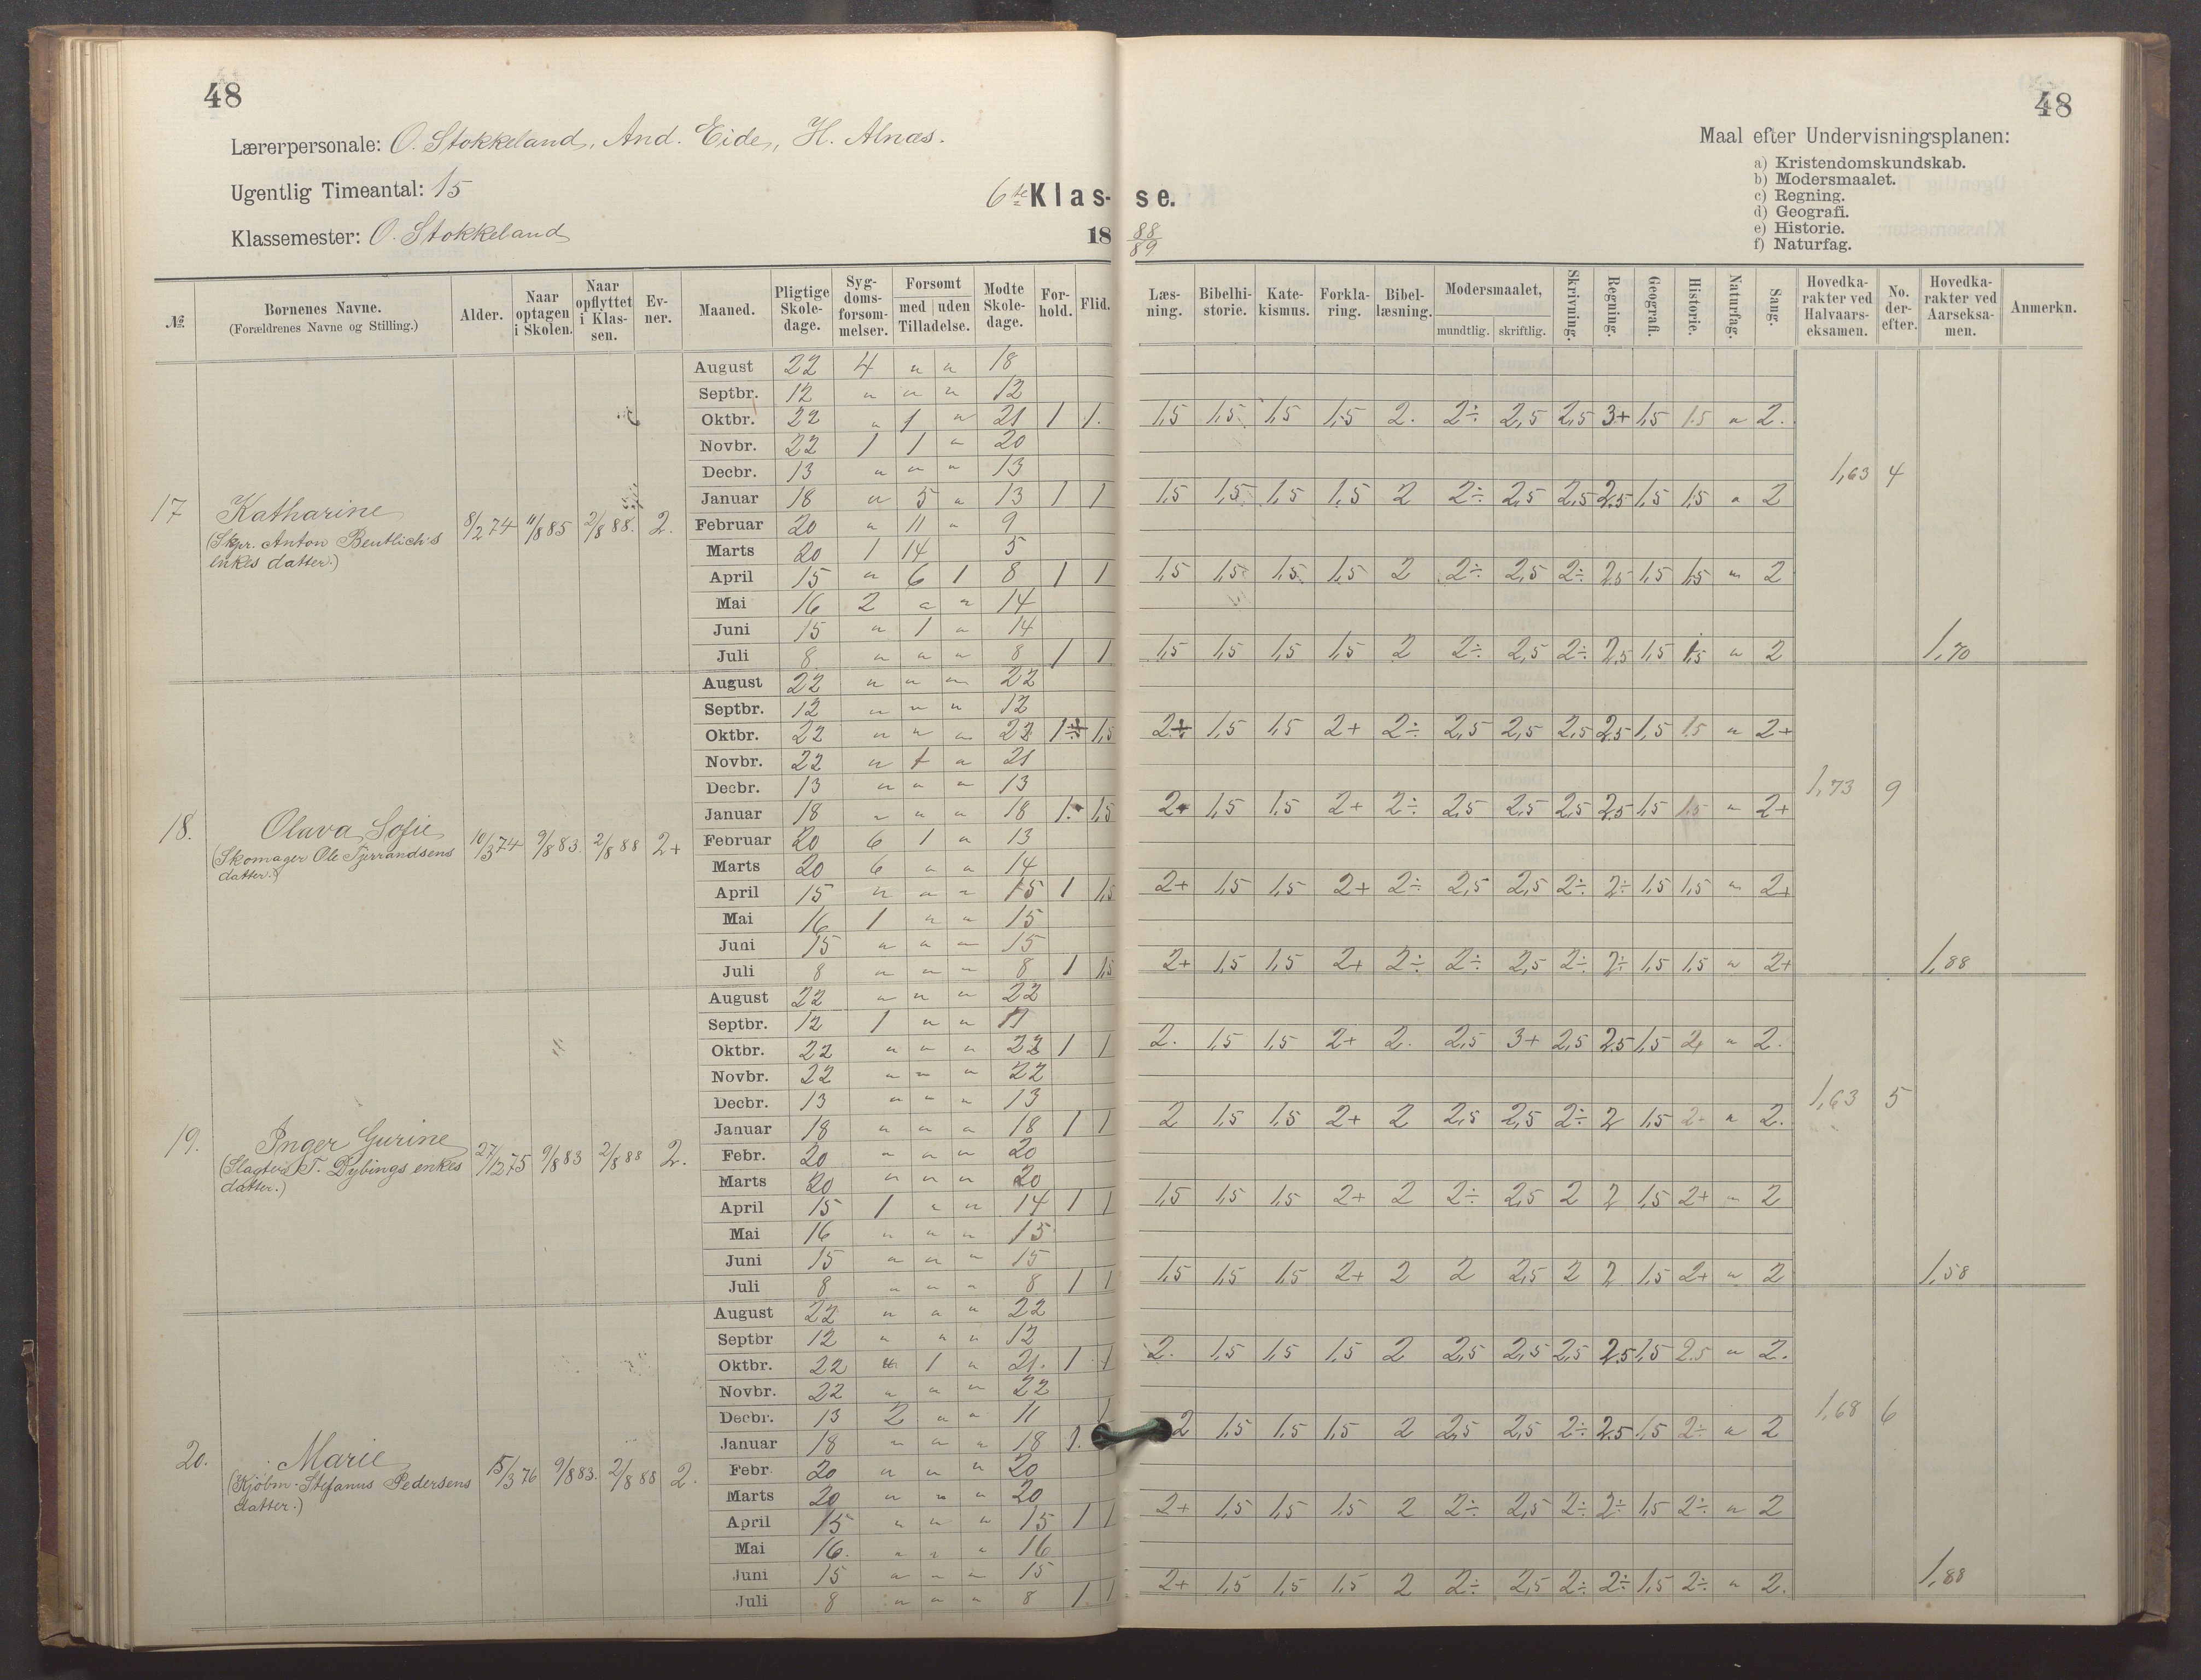 48
48
Lærerpersonale: O. Stokkeland, And. Eide, H. Alnæs.
Ugentlig Timeantal: 15
Klassemester: O. Stokkeland
6te Klas- se.
18 88/89
Maal efter Undervisningsplanen:
a) Kristendomskundskab.
b) Modersmaalet.
c) Regning.
d) Geografi.
e) Historie.
f) Naturfag.
№. Børnenes Navne. (Forældrenes Navne og Stilling.) Alder. Naar optagen i Skolen. Naar opflyttet i Klassen. Evner. Maaned. Pligtige Skoledage. Sygdomsforsømmelser. Forsømt med uden Tilladelse. Mødte Skoledage. Forhold. Flid. Læsning. Bibelhistorie. Katekismus. Forklaring. Bibellæsning. Modersmaalet, mundtlig. skriftlig. Skrivning. Regning. Geografi. Historie. Naturfag. Sang. Hovedkarakter ved Halvaarseksamen. No. derefter. Hovedkarakter ved Aarseksamen. Anmerkn.
17 Katharine
(Skpr. Anton Bentlich's
enkes datter.)
8/2 74 11/8 85 2/8 88. 2.
August 22 4 " " 18
Septbr. 12 " " " 12
Oktbr. 22 " 1 " 21 1 1. 1,5 1,5 1,5 1,5 2. 2÷ 2,5 2,5 3+ 1,5 1.5 " 2.
Novbr. 22 1 1 " 20
Decbr. 13 " " " 13 1,63 4
Januar 18 " 5 " 13 1 1 1,5 1,5 1,5 1,5 2 2÷ 2,5 2,5 2,5 1,5 1,5 " 2
Februar 20 " 11 " 9
Marts 20 1 14 5
April 15 " 6 1 8 1 1 1,5 1,5 1,5 1,5 2 2÷ 2,5 2÷ 2,5 1,5 1,5 " 2
Mai 16 2 " " 14
Juni 15 " 1 " 14
Juli 8 " " " 8 1 1 1,5 1,5 1,5 1,5 2 2÷ 2,5 2÷ 2,5 1,5 1,5 " 2 1,70
18. Olava Sofie
(Skomager Ole Tjerrandsens
datter.)
10/3 74 9/8 83. 2/8 88 2+
August 22 " " " 22
Septbr. 12 " " " 12
Oktbr. 22 " " " 22 1 1,5 2 1,5 1,5 2+ 2÷ 2,5 2,5 2,5 2,5 1,5 1.5 " 2+
Novbr. 22 " 1 " 21
Decbr. 13 " " " 13 1,73 9
Januar 18 " " " 18 1. 1,5 2+ 1,5 1,5 2+ 2÷ 2,5 2,5 2,5 2,5 1,5 1,5 " 2+
Februar 20 6 1 " 13
Marts 20 6 " " 14
April 15 " " " 15 1 1,5 2+ 1,5 1,5 2+ 2÷ 2,5 2,5 2÷ 2÷ 1,5 1,5 " 2+
Mai 16 1 " " 15
Juni 15 " " " 15
Juli 8 " " " 8 1 1,5 2+ 1,5 1,5 2+ 2÷ 2÷ 2,5 2÷ 2÷ 1,5 1,5 " 2+ 1,88
19. Inger Gurine
(Slagter T. Dybings enkes
datter.)
27/12 75 9/8 83 2/8 88 2.
August 22 " " " 22
Septbr. 12 1 " " 11
Oktbr. 22 " " " 22 1 1 2. 1,5 1,5 2+ 2. 2,5 3+ 2,5 2.5 1,5 2+ " 2.
Novbr. 22 " " " 22
Decbr. 13 " " " 13 1,63 5
Januar 18 " " " 18 1 1 2 1,5 1,5 2+ 2 2,5 2,5 2÷ 2 1,5 2+ " 2.
Febr. 20 " " " 20
Marts 20 " " " 20
April 15 1 " " 14 1 1 1,5 1,5 1,5 2+ 2 2÷ 2,5 2 2 1,5 2+ " 2
Mai 16 " " " 15
Juni 15 " " " 15
Juli 8 " " " 8 1 1 1,5 1,5 1,5 2+ 2 2 2,5 2 2 1,5 2+ " 2 1,58
20. Marie
(Kjøbm. Stefanus Pedersens
datter.)
15/3 76 9/8 83. 2/8 88 2.
August 22 " " " 22
Septbr 12 " " " 12
Oktbr. 22 " 1 " 21. 1 1 2. 1,5 1,5 1,5 2 2,5 2,5 2,5 2.5 1,5 2.5 " 2.
Novbr. 22 " " " 22
Decbr. 13 2 " " 11 1 1,68 6
Januar 18 " " " 18 1. 2 1,5 1,5 1,5 2 2,5 2,5 2÷ 2,5 1,5 2÷ " 2
Febr. 20 " " " 20
Marts 20 " " " 20
April 15 " " " 15 1 1 2+ 1,5 1,5 1,5 2 2÷ 2,5 2÷ 2÷ 1,5 2÷ " 2
Mai 16. " " " 16
Juni 15 " " " 15
Juli 8 " " " 8 1 1 2+ 1,5 1,5 1,5 2 2÷ 2,5 2÷ 2÷ 1,5 2÷ " 2. 1,88